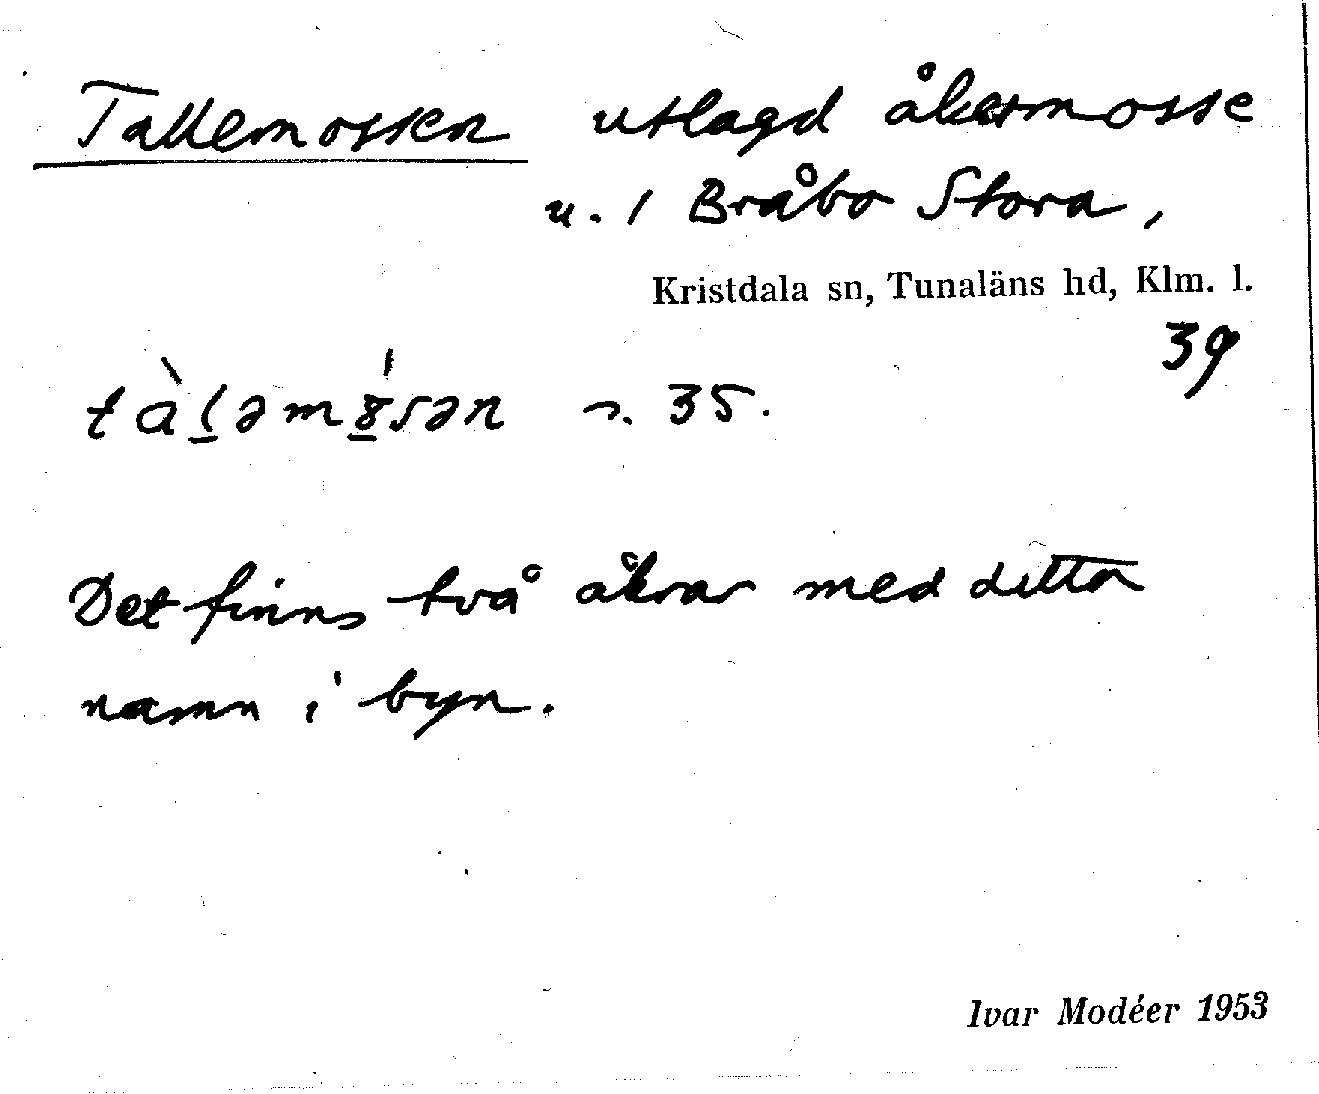 Tallemossen utlagd åkermosse
u. 1 Bråbo Stora,
Kristdala sn, Tunaläns hd, Klm. l.
39
tàl̠əmɤ̠́sən s. 35.
Det finns två åkrar med detta
namn i byn.
Ivar Modéer 1953